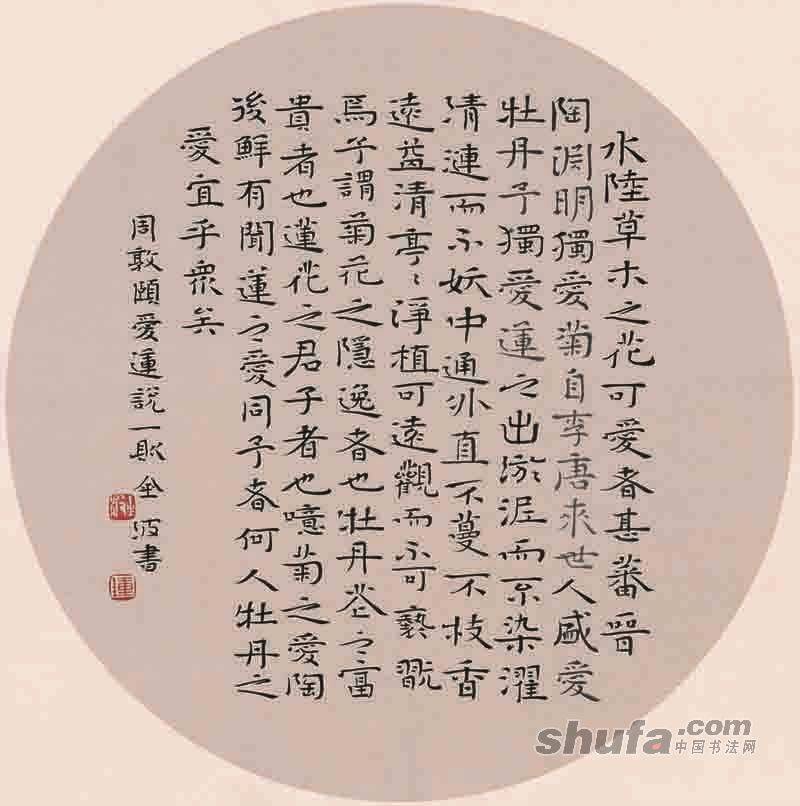 水陸草木之花可愛者甚蕃晉
陶渊明獨愛菊自李唐来世人盛愛
牡丹予獨愛蓮之出淤泥而不染濯
清漣而不妖中通外直不蔓不枝香
遠益清亭〻淨植可遠觀而不可褻翫
焉予謂菊花之隱逸者也牡丹花之富
貴者也蓮花之君子者也噫菊之愛陶
後鮮有聞蓮之愛同予者何人牡丹之
愛宜乎衆矣
周敦頤愛蓮說一則金波書
shufa.com
中国书法网